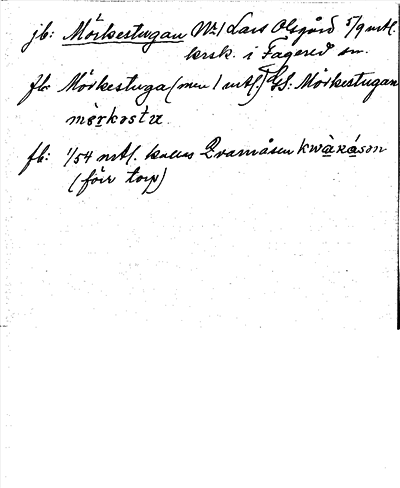 jb: Mörkestugan Nr 1 Lars Olsgård 5/9 mtl.
krsk. i Fagered sn.
fb: Mörkestuga (men 1 mtl.) GS: Mörkestugan
mö̀rkəstɯ.
fb: 1/54 mtl. kallas Qvarnåsen kwàɴåsən
(förr torp)